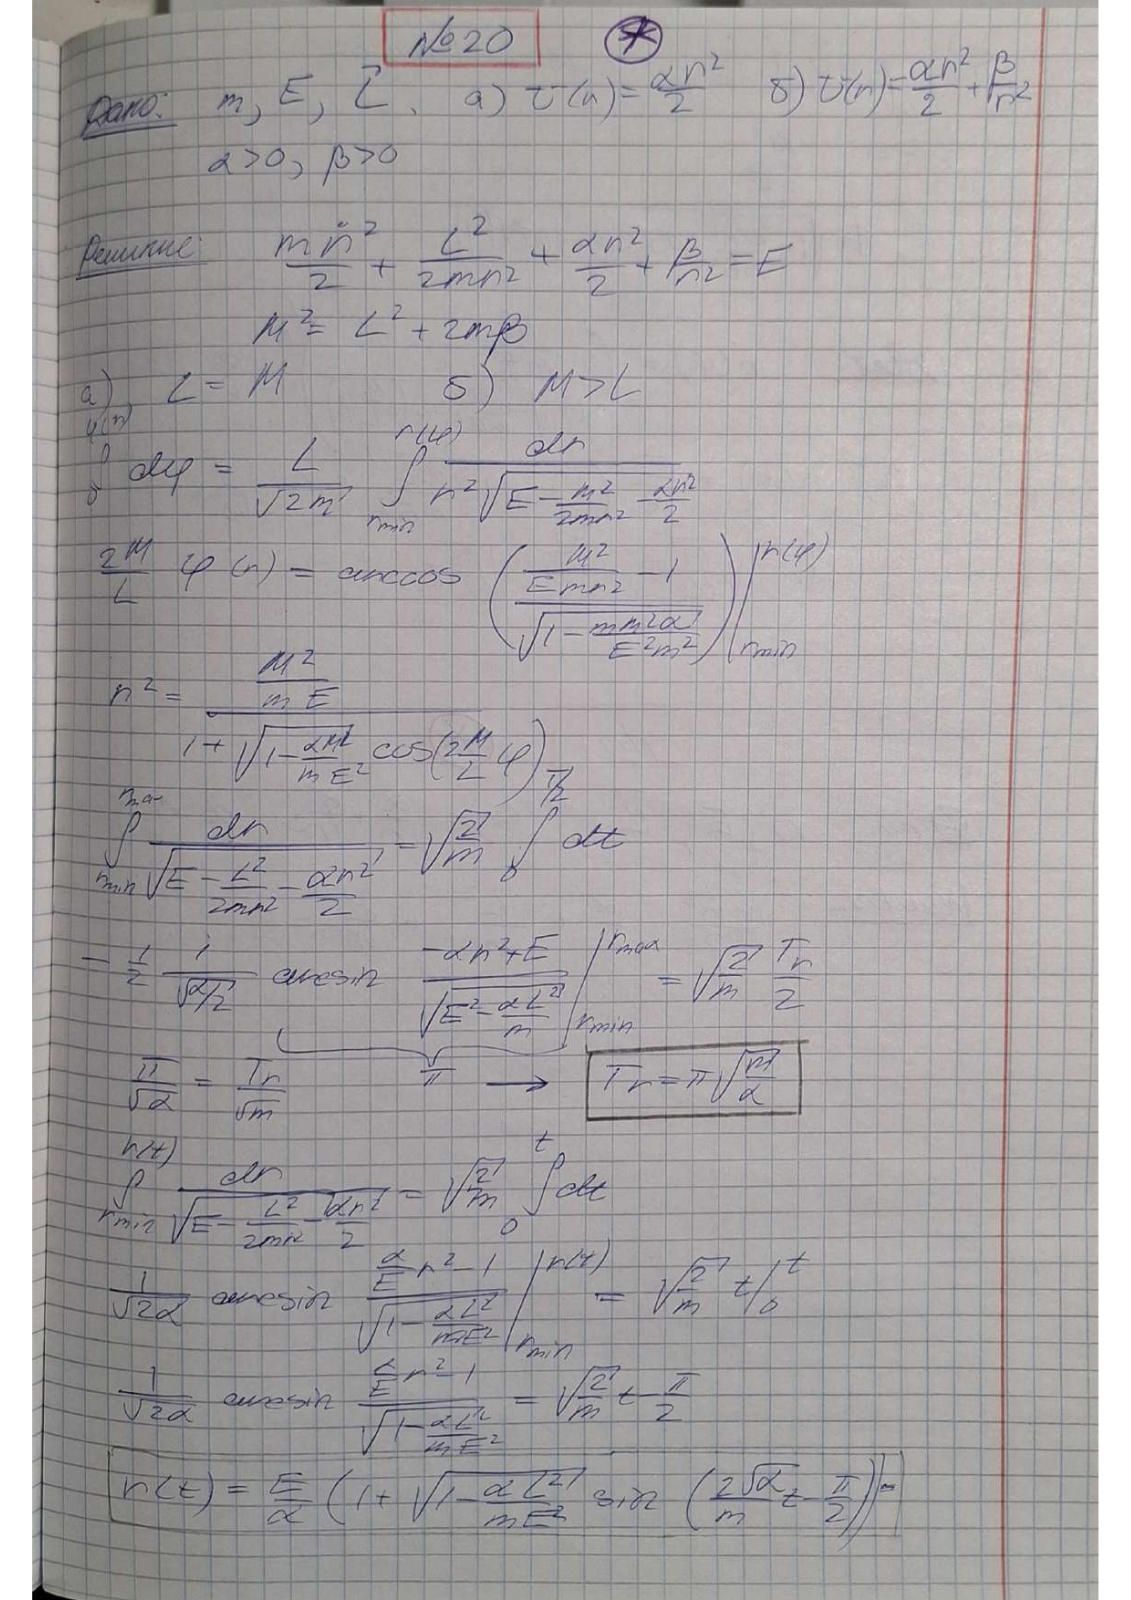 №20 *
Дано: m, E, L⃗. а) U(r)=αr²/2 б) U(r)=αr²/2+β/r²
α>0, β>0
Решение: mṙ²/2 + L²/2mr² + αr²/2 + β/r² = E
M² = L² + 2mβ
а) L = M б) M>L
∫₀^φ(r) dφ = L/√2m ∫_rmin^r(φ) dr/(r²√(E - M²/2mr² - αr²/2))
2M/L φ(r) = arccos ((M²/Emr² - 1)/√(1 - mM²α/E²m²)) |_rmin^r(φ)
r² = (M²/mE)/(1+√(1 - αM²/mE²) cos(2M/L φ))
∫_rmin^rma dr/√(E - L²/2mr² - αr²/2) = √(2/m) ∫₀^T/2 dt
- 1/2 1/√(α/2) arcsin (-αr²+E)/√(E² - αL²/m) |_rmin^rmax = √(2/m) Tr/2
π/√α = Tr/√m π → Tr = π√(m/α)
∫_rmin^r(t) dr/√(E - L²/2mr² - αr²/2) = √(2/m) ∫₀^t dt
1/√2α arcsin (α/E r² - 1)/√(1 - αL²/mE²) |_rmin^r(t) = √(2/m) t|₀^t
1/√2α arcsin (α/E r² - 1)/√(1 - αL²/mE²) = √(2/m) t - π/2
r(t) = E/α (1+√(1 - αL²/mE²) sin (2√α/m t - π/2))